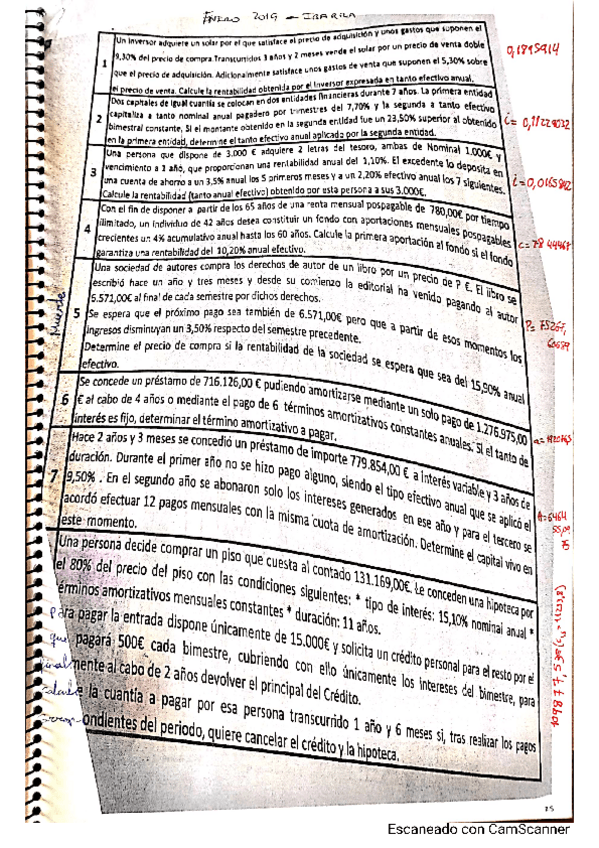 ENERO 2019 - IBARILA
1 Un inversor adquiere un solar por el que satisface el precio de adquisición y unos gastos que suponen el
9,30% del precio de compra. Transcurridos 3 años y 2 meses vende el solar por un precio de venta doble
que el precio de adquisición. Adicionalmente satisface unos gastos de venta que suponen el 5,30% sobre
el precio de venta. Calcule la rentabilidad obtenida por el inversor expresada en tanto efectivo anual.
2 Dos capitales de igual cuantía se colocan en dos entidades financieras durante 7 años. La primera entidad
capitaliza a tanto nominal anual pagadero por trimestres del 7,70% y la segunda a tanto efectivo
bimestral constante. Si el montante obtenido en la segunda entidad fue un 23,50% superior al obtenido
en la primera entidad, determine el tanto efectivo anual aplicado por la segunda entidad.
i = 0,11229032
3 Una persona que dispone de 3.000 € adquiere 2 letras del tesoro, ambas de Nominal 1.000€ y
vencimiento a 1 año, que proporcionan una rentabilidad anual del 1,10%. El excedente lo deposita en
una cuenta de ahorro a un 3,5% anual los 5 primeros meses y a un 2,20% efectivo anual los 7 siguientes.
Calcule la rentabilidad (tanto efectivo anual) obtenido por esta persona a sus 3.000€.
4 Con el fin de disponer a partir de los 65 años de una renta mensual pospagable de 780,00€ por tiempo
ilimitado, un individuo de 42 años desea constituir un fondo con aportaciones mensuales pospagables
crecientes un 4% acumulativo anual hasta los 60 años. Calcule la primera aportación al fondo si el fondo
garantiza una rentabilidad del 10,20% anual efectivo.
5 Una sociedad de autores compra los derechos de autor de un libro por un precio de P €. El libro se
escribió hace un año y tres meses y desde su comienzo la editorial ha venido pagando al autor
5.571,00€ al final de cada semestre por dichos derechos.
Se espera que el próximo pago sea también de 6.571,00€ pero que a partir de esos momentos los
ingresos disminuyan un 3,50% respecto del semestre precedente.
Determine el precio de compra si la rentabilidad de la sociedad se espera que sea del 15,90% anual
efectivo.
6 Se concede un préstamo de 716.126,00 € pudiendo amortizarse mediante un solo pago de 1.276.975,00
€ al cabo de 4 años o mediante el pago de 6 términos amortizativos constantes anuales. Si el tanto de
interés es fijo, determinar el término amortizativo a pagar.
7 Hace 2 años y 3 meses se concedió un préstamo de importe 779.854,00 €, a interés variable y 3 años de
duración. Durante el primer año no se hizo pago alguno, siendo el tipo efectivo anual que se aplicó el
9,50% . En el segundo año se abonaron solo los intereses generados en ese año y para el tercero se
acordó efectuar 12 pagos mensuales con la misma cuota de amortización. Determine el capital vivo en
este momento.
Una persona decide comprar un piso que cuesta al contado 131.169,00€. Le conceden una hipoteca por
el 80% del precio del piso con las condiciones siguientes: * tipo de interés: 15,10% nominal anual *
términos amortizativos mensuales constantes * duración: 11 años.
para pagar la entrada dispone únicamente de 15.000€ y solicita un crédito personal para el resto por el
que pagará 500€ cada bimestre, cubriendo con ello únicamente los intereses del bimestre, para
finalmente al cabo de 2 años devolver el principal del Crédito.
la cuantía a pagar por esa persona transcurrido 1 año y 6 meses si, tras realizar los pagos
ondientes del periodo, quiere cancelar el crédito y la hipoteca.
15
Escaneado con CamScanner